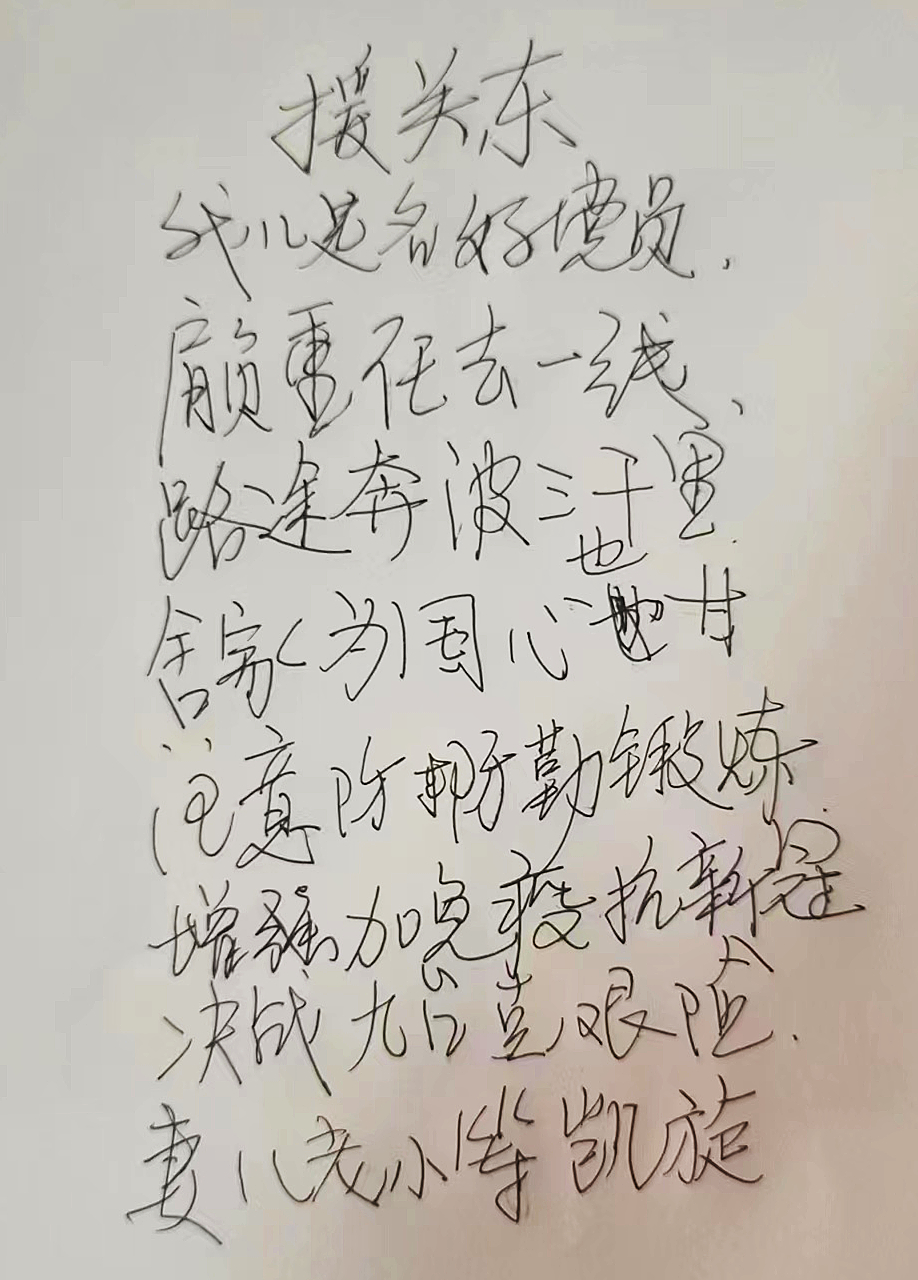 援关东
我儿是名好员.
肩负重任去一线、
路途奔波三千里.
舍家为国心也甘
注意防勤锻炼
增强加免疫抗新冠
决战九台克艰险.
妻儿老小等凯旋